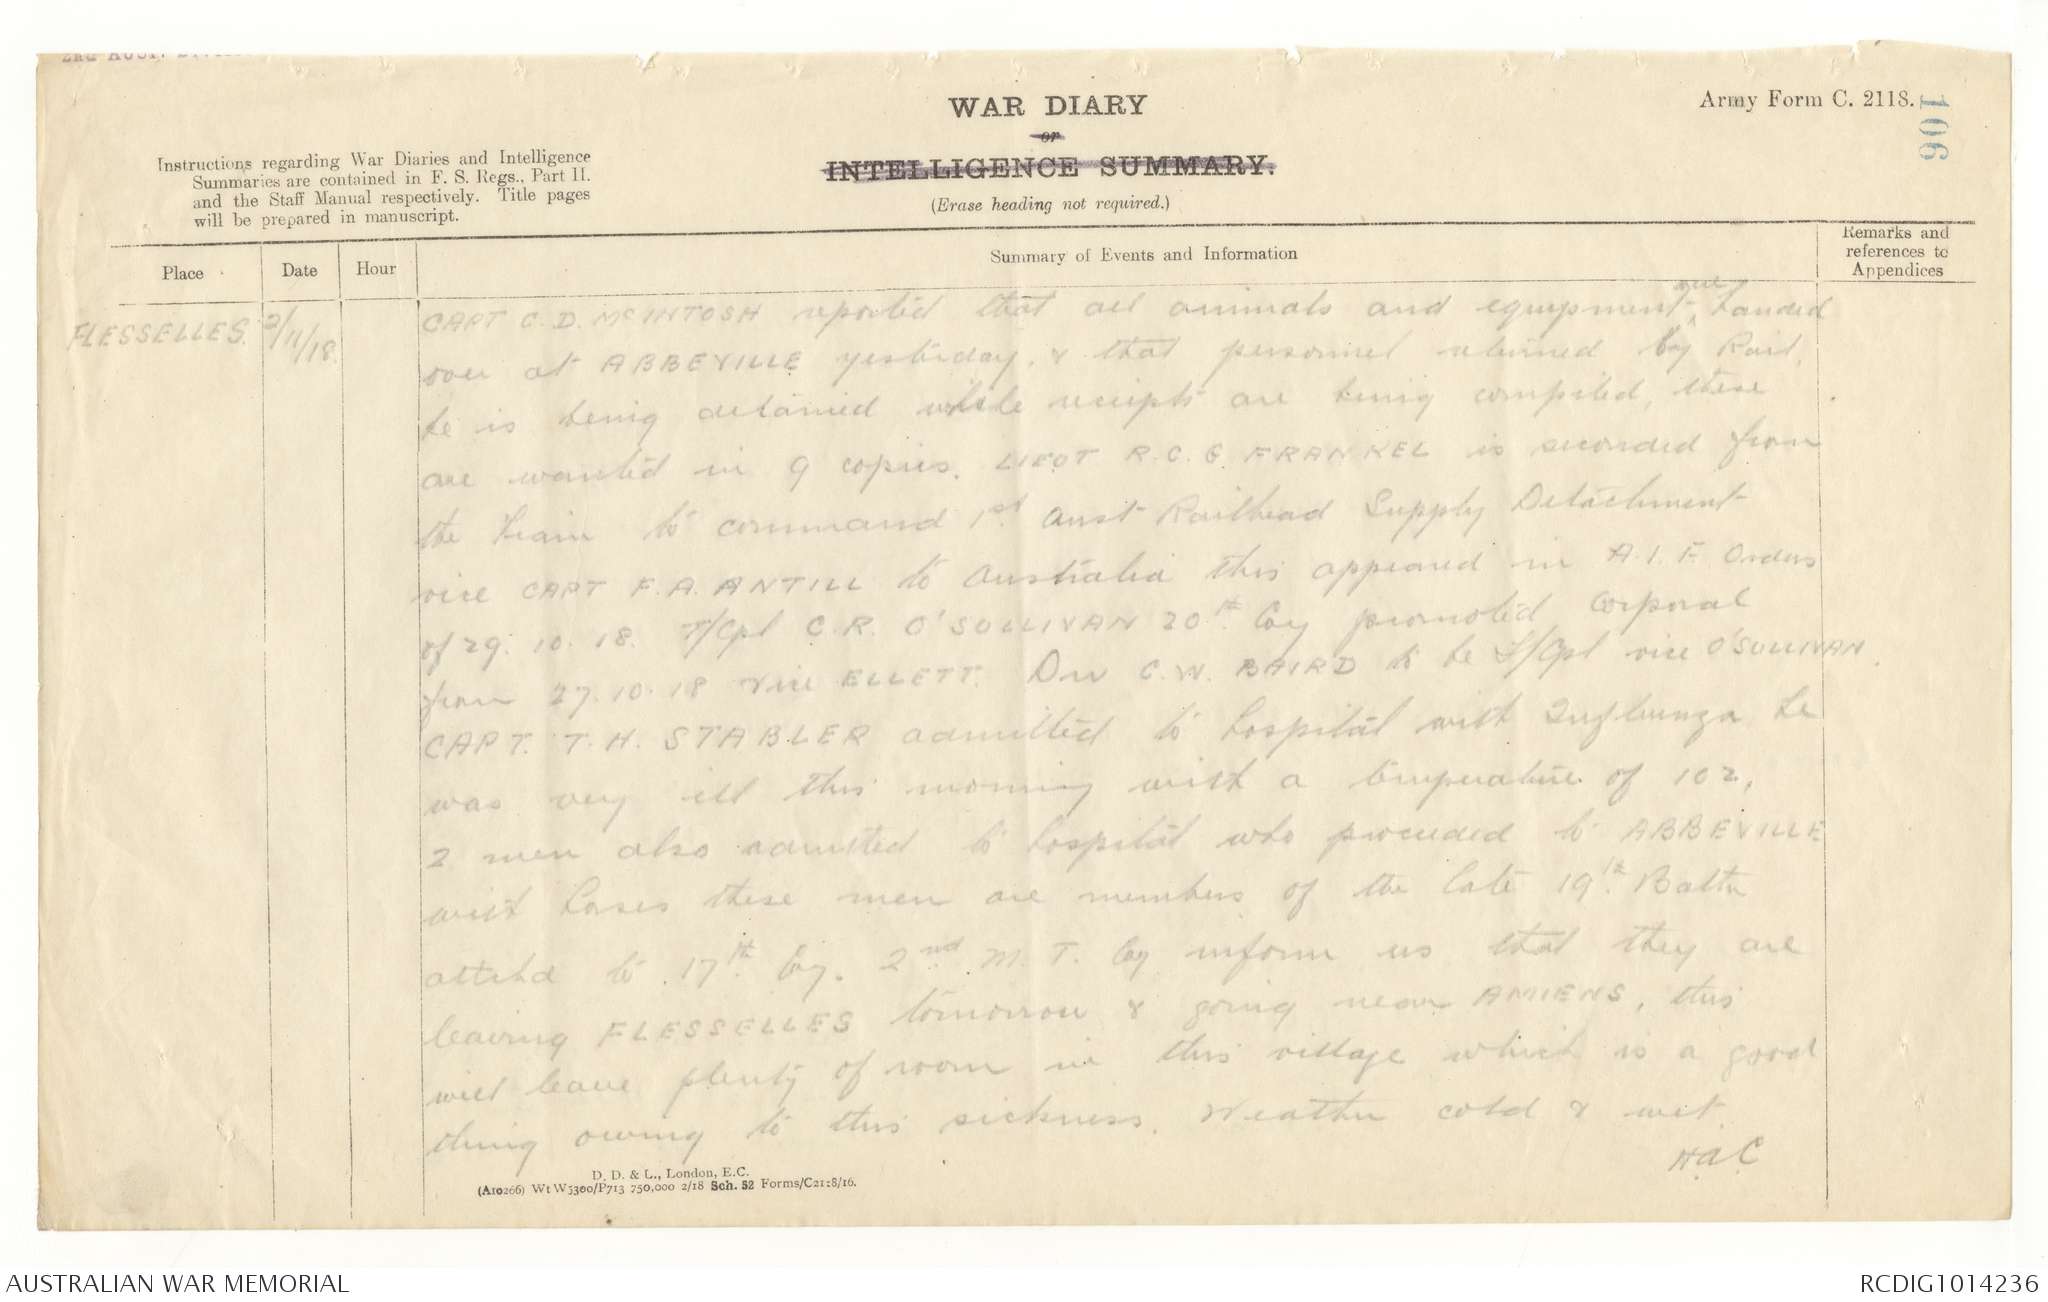 2nd AUST.
WAR DIARY
or
INTELLIGENCE SUMMARY.
(Erase heading not required.)
Army Form C. 2118.
106
Instructions regarding War Diaries and Intelligence
Summaries are contained in F. S. Regs., Part II.
and the Staff Manual respectively. Title pages
will be prepared in manuscript.
Place
Date
Hour
Summary of Events and Information
Remarks and
references to
Appendices
FLESSELLES. 2/11/18.
CAPT C. D. McINTOSH reported that all animals and equipment were handed
over at ABBEVILLE yesterday, & that personnel returned by Rail.
he is being detained while receipts are being compiled, these
are wanted in 9 copies. LIEUT R.C.G. FRANKEL is seconded from
the Train to command 1st Aust Railhead Supply Detachment
vice CAPT F.A. ANTILL to Australia this appeared in A.I.F. Orders
of 29.10.18. T/Cpl C.R. O'SULLIVAN 20th Coy promoted Corporal
from 27.10.18 vice ELLETT. Dvr C.W. BAIRD to be T/Cpl vice O'SULLIVAN.
CAPT. T.H. STABLER admitted to hospital with Influenza he
was very ill this morning with a temperature of 102,
2 men also admitted to hospital who proceeded to ABBEVILLE
with horses these men are members of the late 19th Battn
attchd to 17th Coy. 2nd M.T. Coy inform us that they are
leaving FLESSELLES tomorrow & going near AMIENS, this
will leave plenty of room in this village which is a good
thing owing to this sickness. Weather cold & wet.
HAC
D. D. & L., London, E.C.
(A10266) Wt W5300/P713 750,000 2/18 Sch. 52 Forms/C2118/16.
AUSTRALIAN WAR MEMORIAL
RCDIG1014236